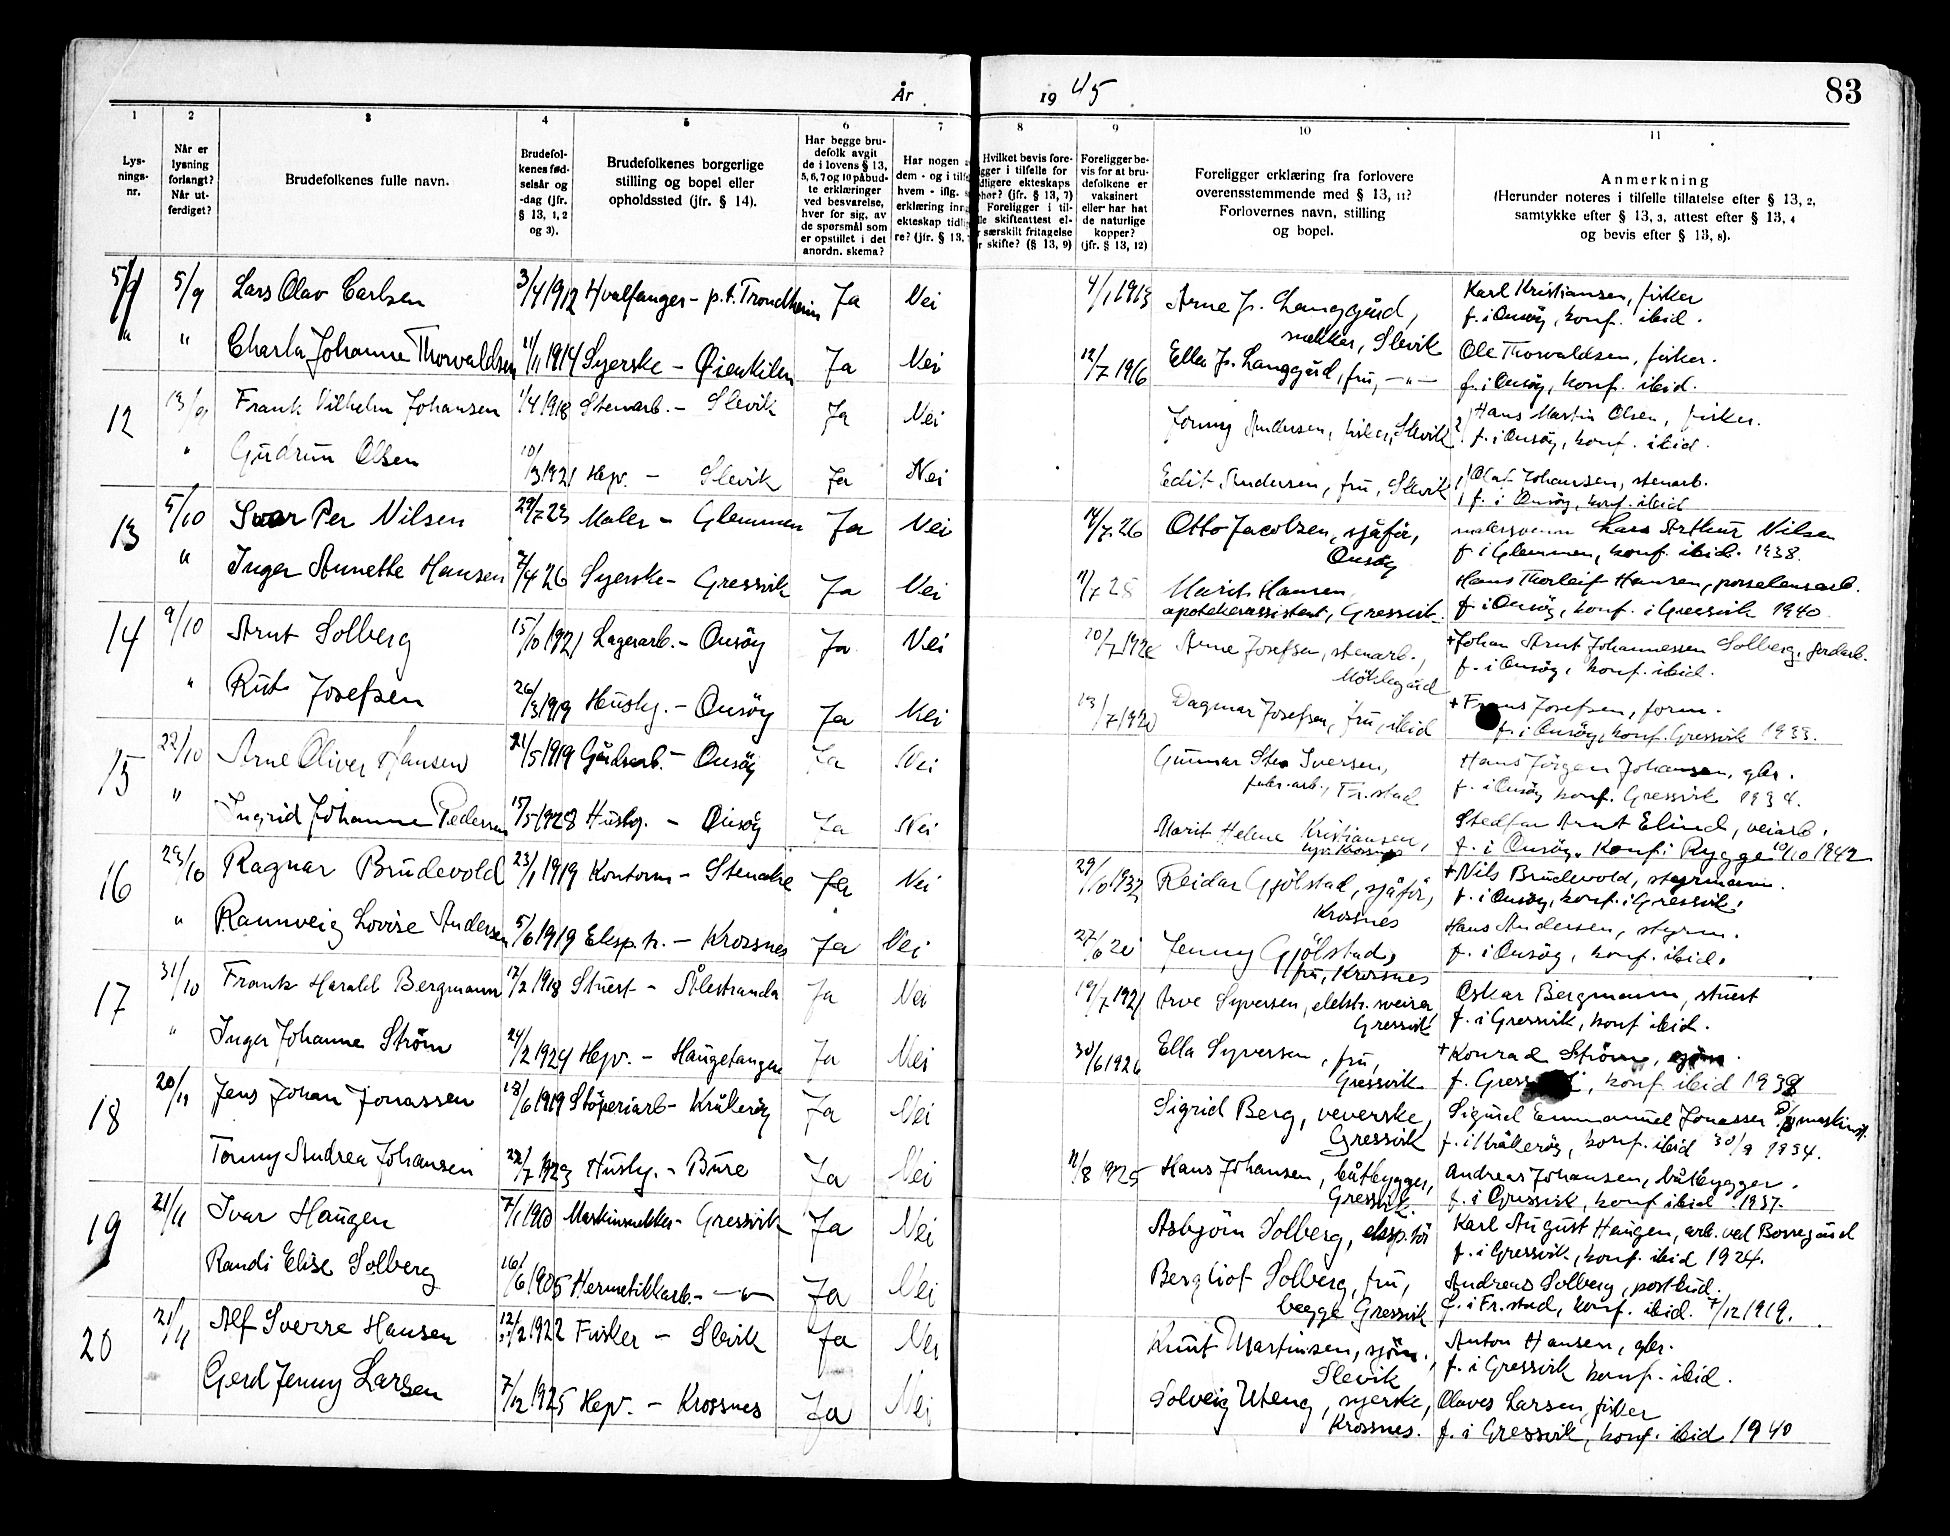 År 1945 83
1 2 3 4 5 6 7 8 9 10 11
Lys-
nings-
nr.
Når er
lysning
forlangt?
Når ut-
ferdiget?
Brudefolkenes fulle navn.
Brudefol-
kenes fød-
selsår og
-dag (jfr.
§ 13, 1, 2
og 3).
Brudefolkenes borgerlige
stilling og bopel eller
opholdssted (jfr. § 14).
Har begge bru-
defolk avgit
de i lovens § 13,
5, 6, 7 og 10 påbud-
te erklæringer
ved besvarelse,
hver for sig, av
de spørsmål som
er opstillet i det
anordn. skema?
Har nogen
dem - og i tilf
hvem - iflg.
erklæring inn
ekteskap tidli
re? (jfr. § 13,
Hvilket bevis fore-
gger i tilfelle for
dligere ekteskaps
phør? (jfr. § 13, 7)
Foreligger i til-
le skifteattest el-
r særskilt fritagelse
r skifte? (§ 13, 9)
Foreligger be-
vis for at bru-
defolkene er
vaksinert
eller har hat
de naturlige
kopper?
(jfr. § 13, 12)
Foreligger erklæring fra forlovere
overensstemmende med § 13, 11?
Forlovernes navn, stilling
og bopel.
Anmerkning
(Herunder noteres i tilfelle tillatelse efter § 13, 2,
samtykke efter § 13, 3, attest efter § 13, 4
og bevis efter § 13, 8).
5/9 Lars Olav Carlsen 3/4 1912 Hvalfanger - p.t. Trondheim Ja Nei 4/1 1913 Arne J. Langgård, Karl Kristiansen, fisker
snekker, Slevik f. i Onsøy, konf. ibid.
" " Charla Johanne Thorvaldsen 11/11 1914 Syerske - Øienkilen Ja Nei 12/7 1916 Ella J. Langgård, fru, -"- Ole Thorvaldsen, fisker.
f. i Onsøy, konf. ibid.
12 13/9 Frank Vilhelm Johansen 1/4 1918 Stenarb. - Slevik Ja Nei Jonny Andersen, fisker, Slevik Hans Martin Olsen, fisker.
f. i Onsøy, konf. ibid.
" Gudrun Olsen 10/3 1921 Hpv. - Slevik Ja Nei Edit Andersen, fru, Slevik Olaf Johansen, stenarb.
f. i Onsøy, konf. ibid
13 5/10 Ivar Per Nilsen 29/7 23 Maler - Glemmen Ja Nei 14/7.26 Otto Jacobsen, sjåfør, malersvenn Lars Arthur Nilsen
Onsøy f. i Glemmen, konf. ibid. 1938.
" Inger Annette Hansen 7/4 26 Syerske - Gressvik Ja Nei 11/7 28 Marit Hansen, Hans Thorleif Hansen, porselensarb.
apotekerassistent, Gressvik f. i Onsøy, konf. i Gressvik 1940.
14 9/10 Arnt Solberg 15/10 1921 Lagerarb. - Onsøy Ja Nei Arne Josefsen, stenarb., + Johan Arnt Johannessen Solberg, jordarb.
f. i Onsøy, konf. ibid.
" Rut Josefsen 26/3 1919 Husby. - Onsøy Ja Nei 13/7 1920 Dagmar Josefsen, fru, ibid + Frans Josefsen, form.
f. i Onsøy, konf. Gressvik 1933.
15 22/10 Arne Oliver Hansen 21/5 1919 Gårdsarb. - Onsøy Ja Nei Gunnar Sten Iversen, Hans Jörgen Johansen, gbr.
fabr.arb., Fr.stad f. i Onsøy konf. Gressvik 1934.
" Ingrid Johanne Pedersen 15/5 1928 Husby. - Onsøy Ja Nei Marit Helene Kristiansen, Stedfar Arnt Elind, veiarb.
Krossnes f. i Onsøy. Konf. i Rygge 10/10 1942
16 23/10 Ragnar Brudevold 23/1 1919 Kontorm - Stenake Ja Nei 29/10 1932 Reidar Gjölstad, sjåför, + Nils Brudevold, styrmann.
Krossnes f. i Onsøy, konf. i Gressvik.
" Rannveig Lovise Andersen 5/6 1919 Eksp. h. - Krossnes Ja Nei 27/6 20 Jenny Gjölstad, Hans Andersen, styrm.
fru, Krossnes f. i Onsøy, konf. ibid.
17 31/10 Frank Harald Bergmann 17/2 1918 Stuert - Ålestranda Ja Nei 19/7 1921 Arve Syversen, elektr. sveiser, Oskar Bergmann, stuert
Gressvik f. i Gressvik, konf ibid.
" Inger Johanne Ström 24/2 1924 Hpv. - Haugetangen Ja Nei 30/6 1926 Ella Syversen, fru, + Konrad Ström, sjøm.
Gressvik f. Gressvik, konf. ibid 1938
18 20/11 Jens Johan Jonassen 18/6 1919 Stöperiarb - Kråkeröy Ja Nei Sigrid Berg, veverske, Sigurd Emmanuel Jonassen, maskinist.
Gressvik f. i Kråkeröy, konf. ibid 30/9 1934.
Tonny Andrea Johansen 22/7 1923 Husby. - Bure Ja Nei 11/8 1925 Hans Johansen, båtbygger, Andreas Johansen, båtbygger.
Gressvik. f. i Gressvik, konf ibid 1937.
19 21/11 Ivar Haugen 7/1 1910 Maskinsnekker - Gressvik Ja Nei Asbjörn Solberg, eksp.tör Karl August Haugen, arb. ved Borregård
f. i Gressvik, konf. ibid 1924.
Randi Elise Solberg 16/6 1905 Hermetikkarb. - -"- Ja Nei Bergliot Solberg, fru, Andreas Solberg, postbud.
begge Gressvik f. i Fr.stad, konf. ibid. 7/12 1919.
20 21/11 Alf Sverre Hansen 12/2 1922 Fisker - Slevik Ja Nei Knut Martinsen, sjöm., Anton Hansen, gbr.
Slevik f. i Gressvik konf. ibid.
Gerd Jenny Larsen 7/12 1925 Hpv. - Krossnes Ja Nei Solveig Uteng, syerske, Olaves Larsen, fisker
Krossnes. f. i Gressvik, konf. ibid 1940